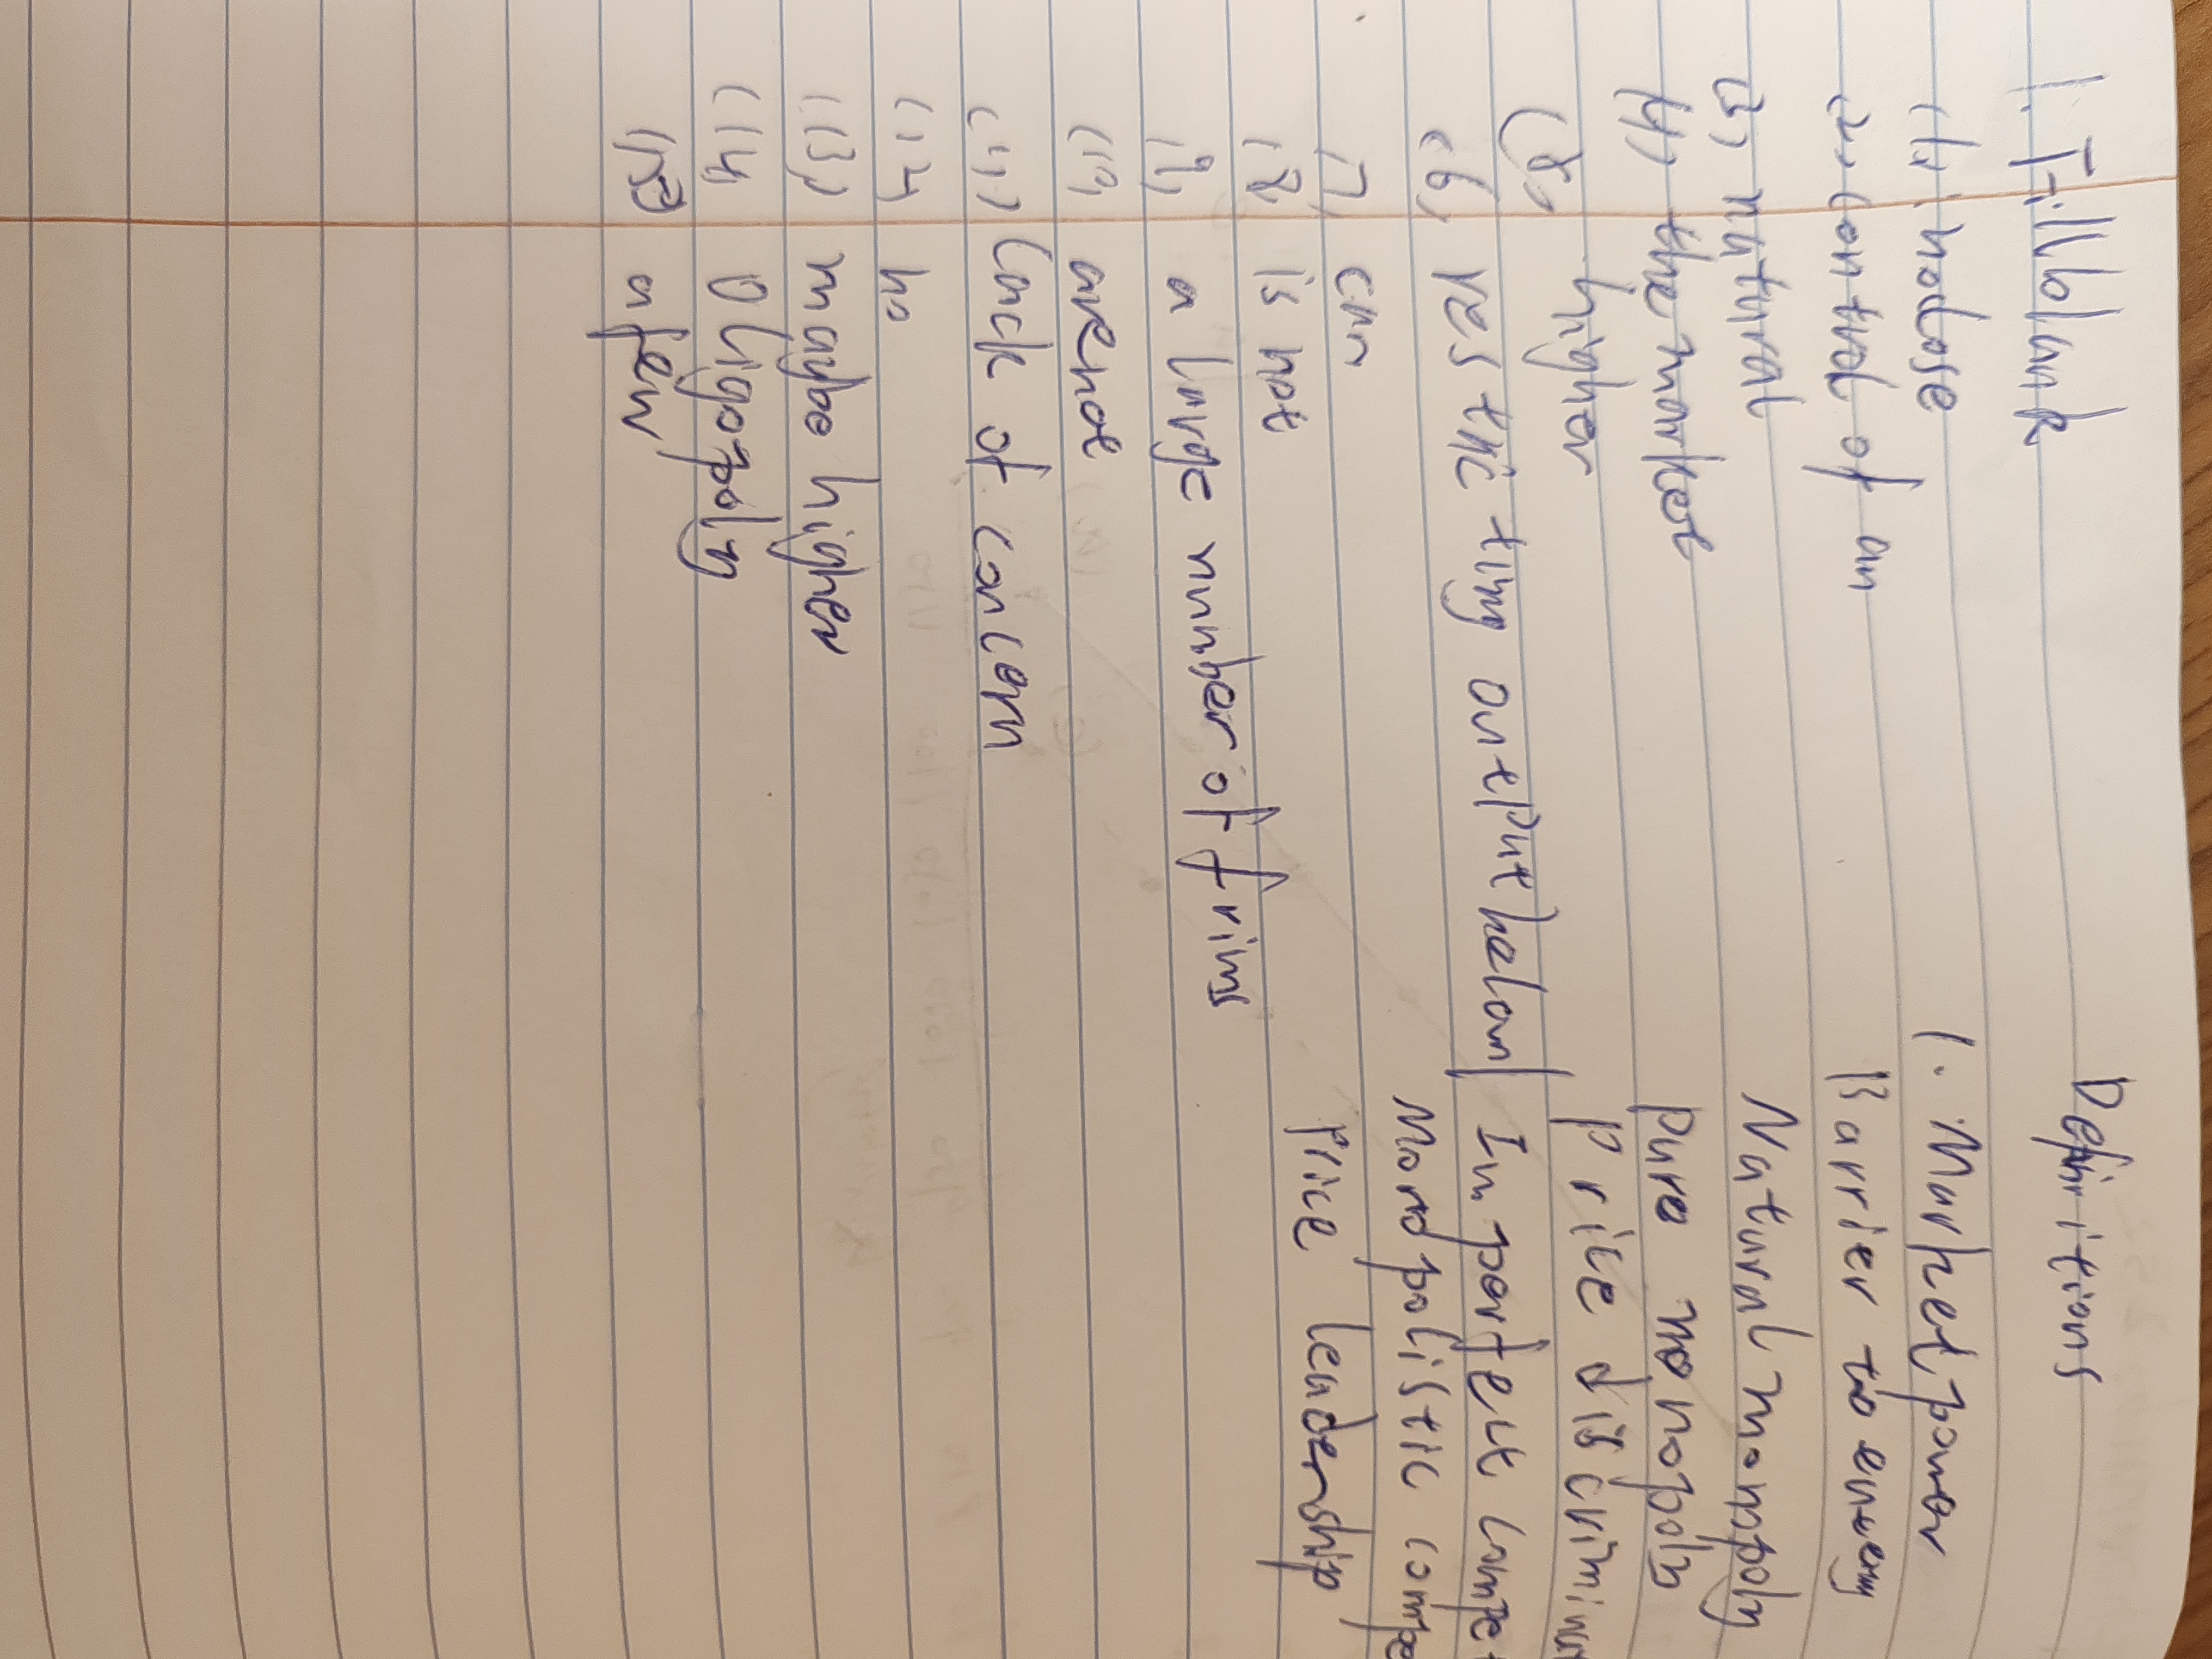 1. Fill blank
(1). no lose
(2). control of an
(3) natural
(4) the market
(5) higher
(6) res tric ting output below
(7) can
(8) is not
(9) a large number of frims
(10) are not
(11) Lack of concern
(12) no
(13) maybe higher
(14) Oligopoly
(15) a few
Definitions
1. Market power
Barrier to entry
Natural monopoly
Pure monopoly
Price discrimina
Imperfect compet
Monopolistic compe
Price leadership